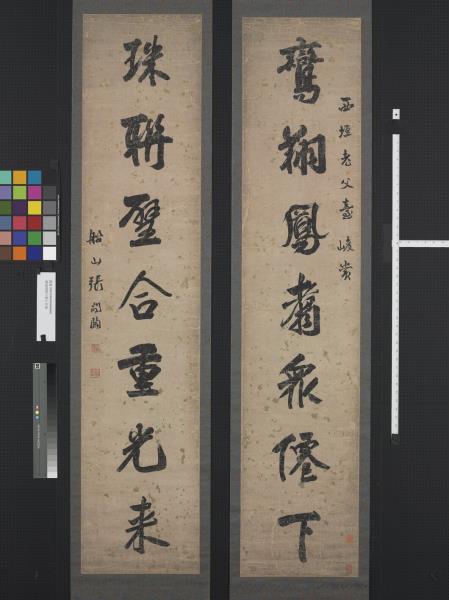 鸞翔鳳翥眾僊下
西垣老父臺峻賞
珠聯璧合重光来
船山張問陶